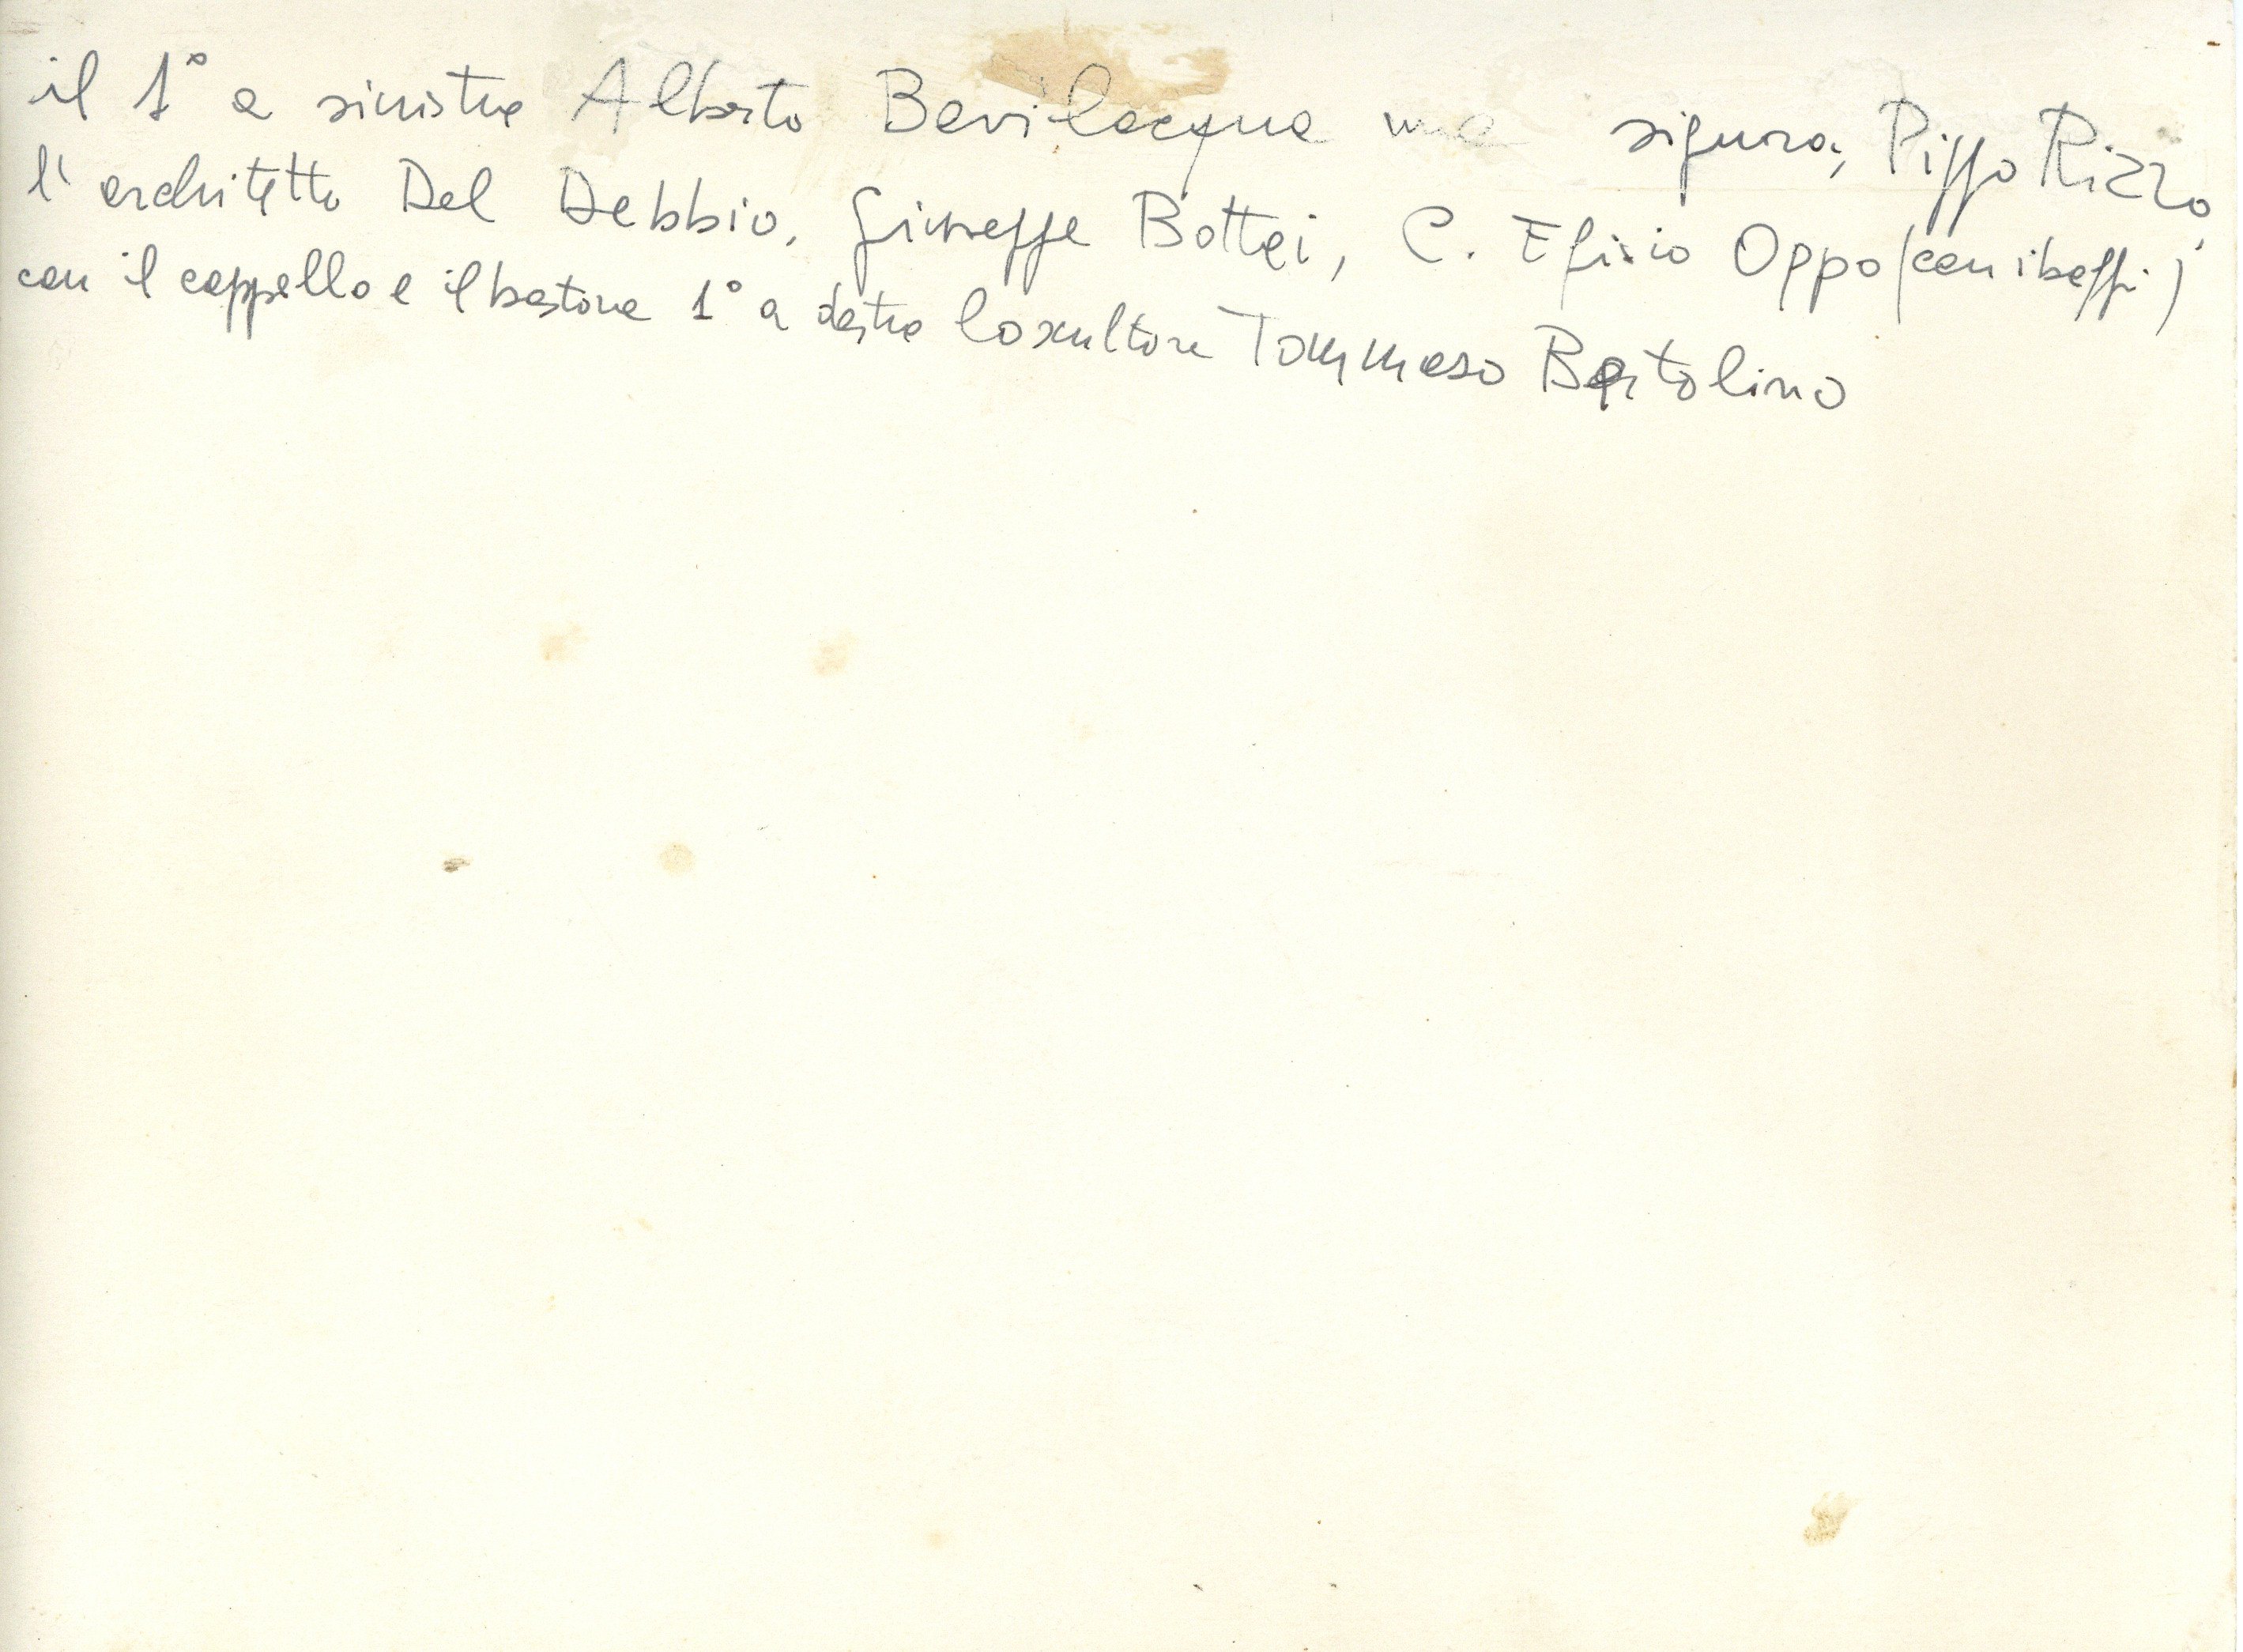 il 1° a sinistra Alberto Bevilacqua una signora, Pippo Rizzo,
l'architetto Del Debbio, Giuseppe Bottai, C. Efisio Oppo (con i baffi)
con il cappello e il bastone 1° a destra lo scultore Tommaso Bertolino